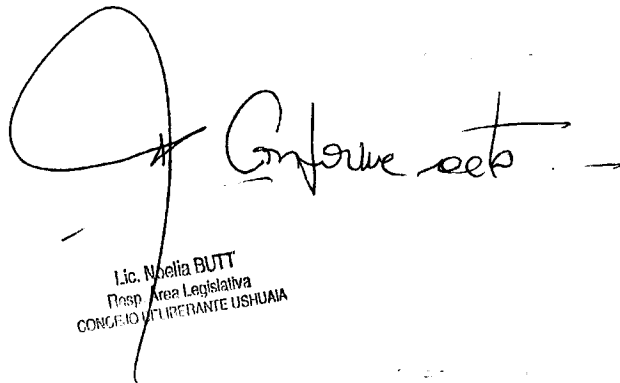 Conforme acto.
Lic. Noelia BUTT
Resp. Area Legislativa
CONCEJO DELIBERANTE USHUAIA